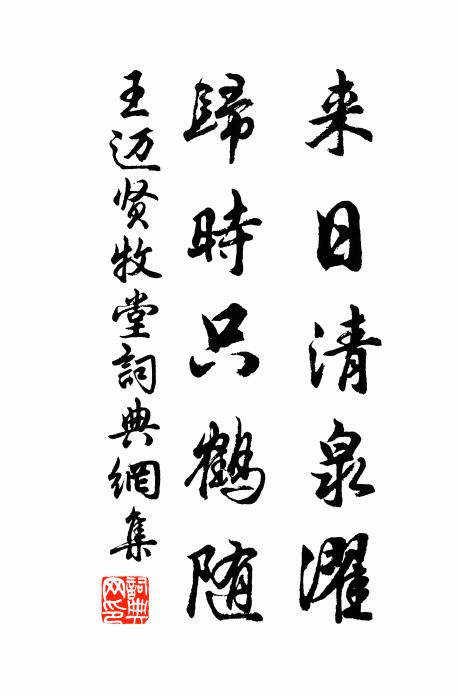 来日清泉濯
歸時只鶴随
王迈贤牧堂詞典網集
詞典網印